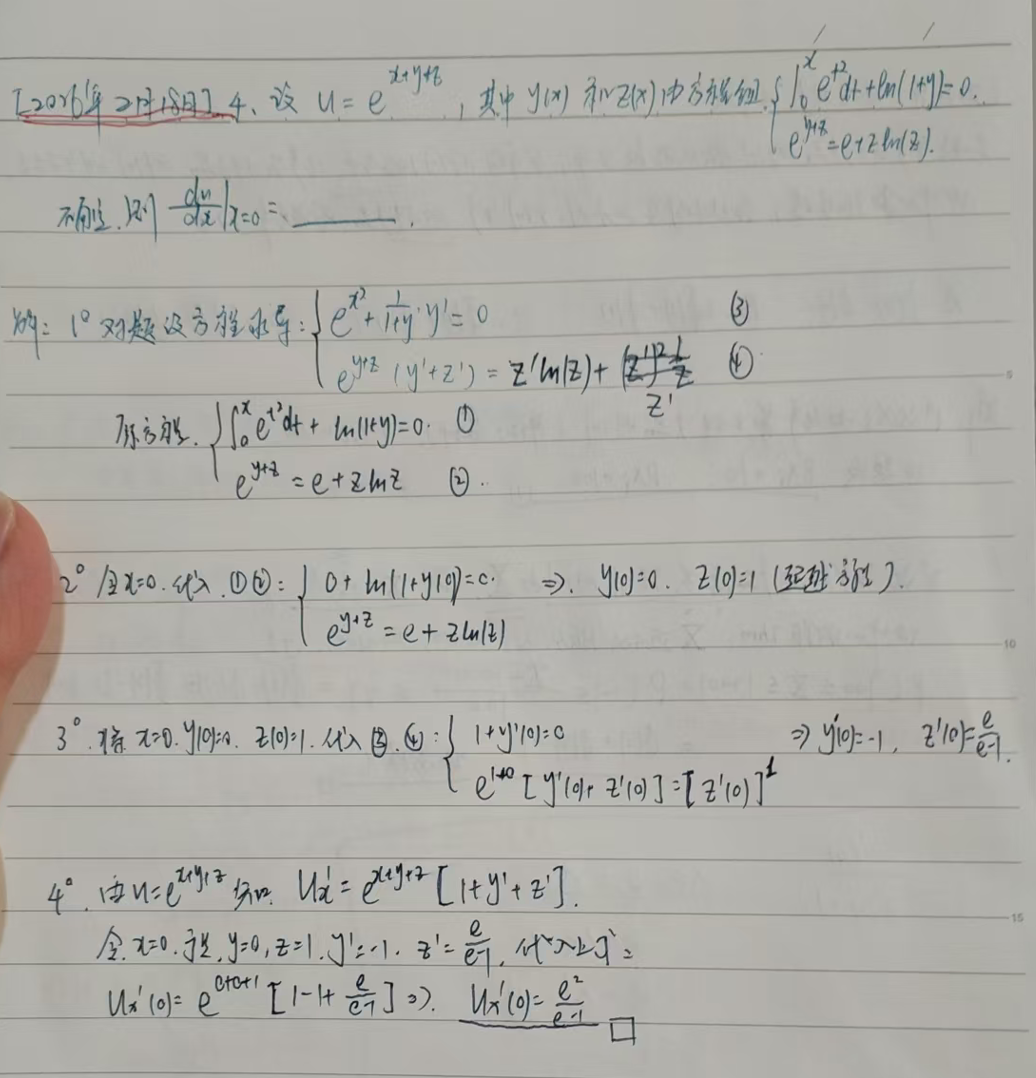 [2026年2月18日] 4、设 u = e^{x+y+z}, 其中 y(x) 和 z(x) 由方程组 { ∫_0^x e^{t²}dt + ln(1+y) = 0.
e^{y+z} = e + z ln(z).
确定, 则 du/dx|x=0 = ______.
解: 1° 对题设方程求导: { e^{x²} + 1/(1+y)·y' = 0 ③
e^{y+z} (y'+z') = z' ln(z) + z' ④
原方程. { ∫_0^x e^{t²}dt + ln(1+y) = 0. ①
e^{y+z} = e + z ln z ②.
2° 令 x=0. 代入 ①②: { 0 + ln(1+y(0)) = 0. ⇒ y(0)=0. z(0)=1 (方程).
e^{y+z} = e + z ln(z)
3°. 将 x=0. y(0)=0. z(0)=1. 代入 ③. ④: { 1+y'(0)=0 ⇒ y'(0)=-1, z'(0)=e/(e-1).
e^{1+0} [y'(0)+z'(0)] = [z'(0)]^1
4°. 由 u=e^{x+y+z} 知 Ux' = e^{x+y+z} [1+y'+z'].
令 x=0. y=0, z=1. y'=-1. z'=e/(e-1), 代入上式:
Ux'(0) = e^{0+0+1} [1-1+e/(e-1)] ⇒. Ux'(0) = e²/(e-1) □